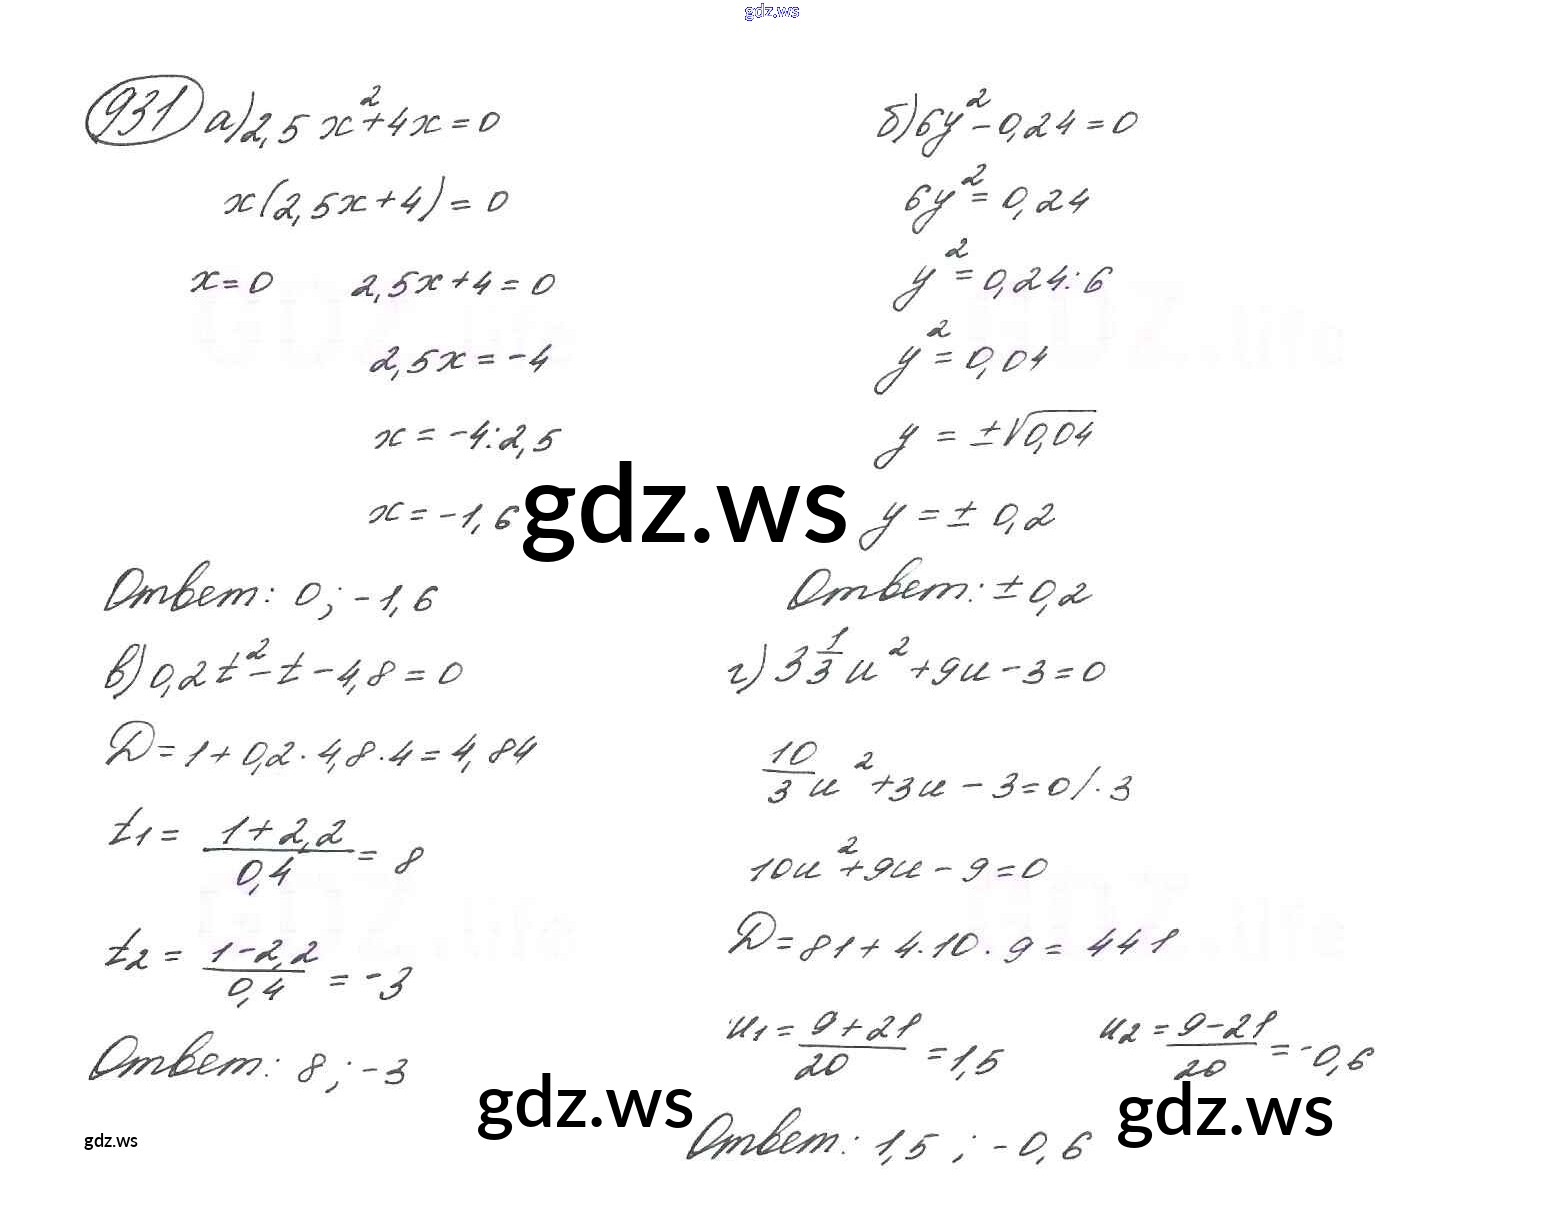 gdz.ws
931 а) 2,5x²+4x=0
x(2,5x+4)=0
x=0 2,5x+4=0
2,5x=-4
x=-4:2,5
x=-1,6
Ответ: 0; -1,6
б) 6y²-0,24=0
6y²=0,24
y²=0,24:6
y²=0,04
y=±√0,04
y=±0,2
Ответ: ±0,2
gdz.ws
в) 0,2t²-t-4,8=0
D=1+0,2·4,8·4=4,84
t₁=(1+2,2)/0,4=8
t₂=(1-2,2)/0,4=-3
Ответ: 8; -3
г) 3 1/3 u²+9u-3=0
10/3 u²+3u-3=0/·3
10u²+9u-9=0
D=81+4·10·9=441
u₁=(9+21)/20=1,5 u₂=(9-21)/20=-0,6
Ответ: 1,5; -0,6
gdz.ws
gdz.ws
gdz.ws
GDZ.life
GDZ.life
GDZ.life
GDZ.life